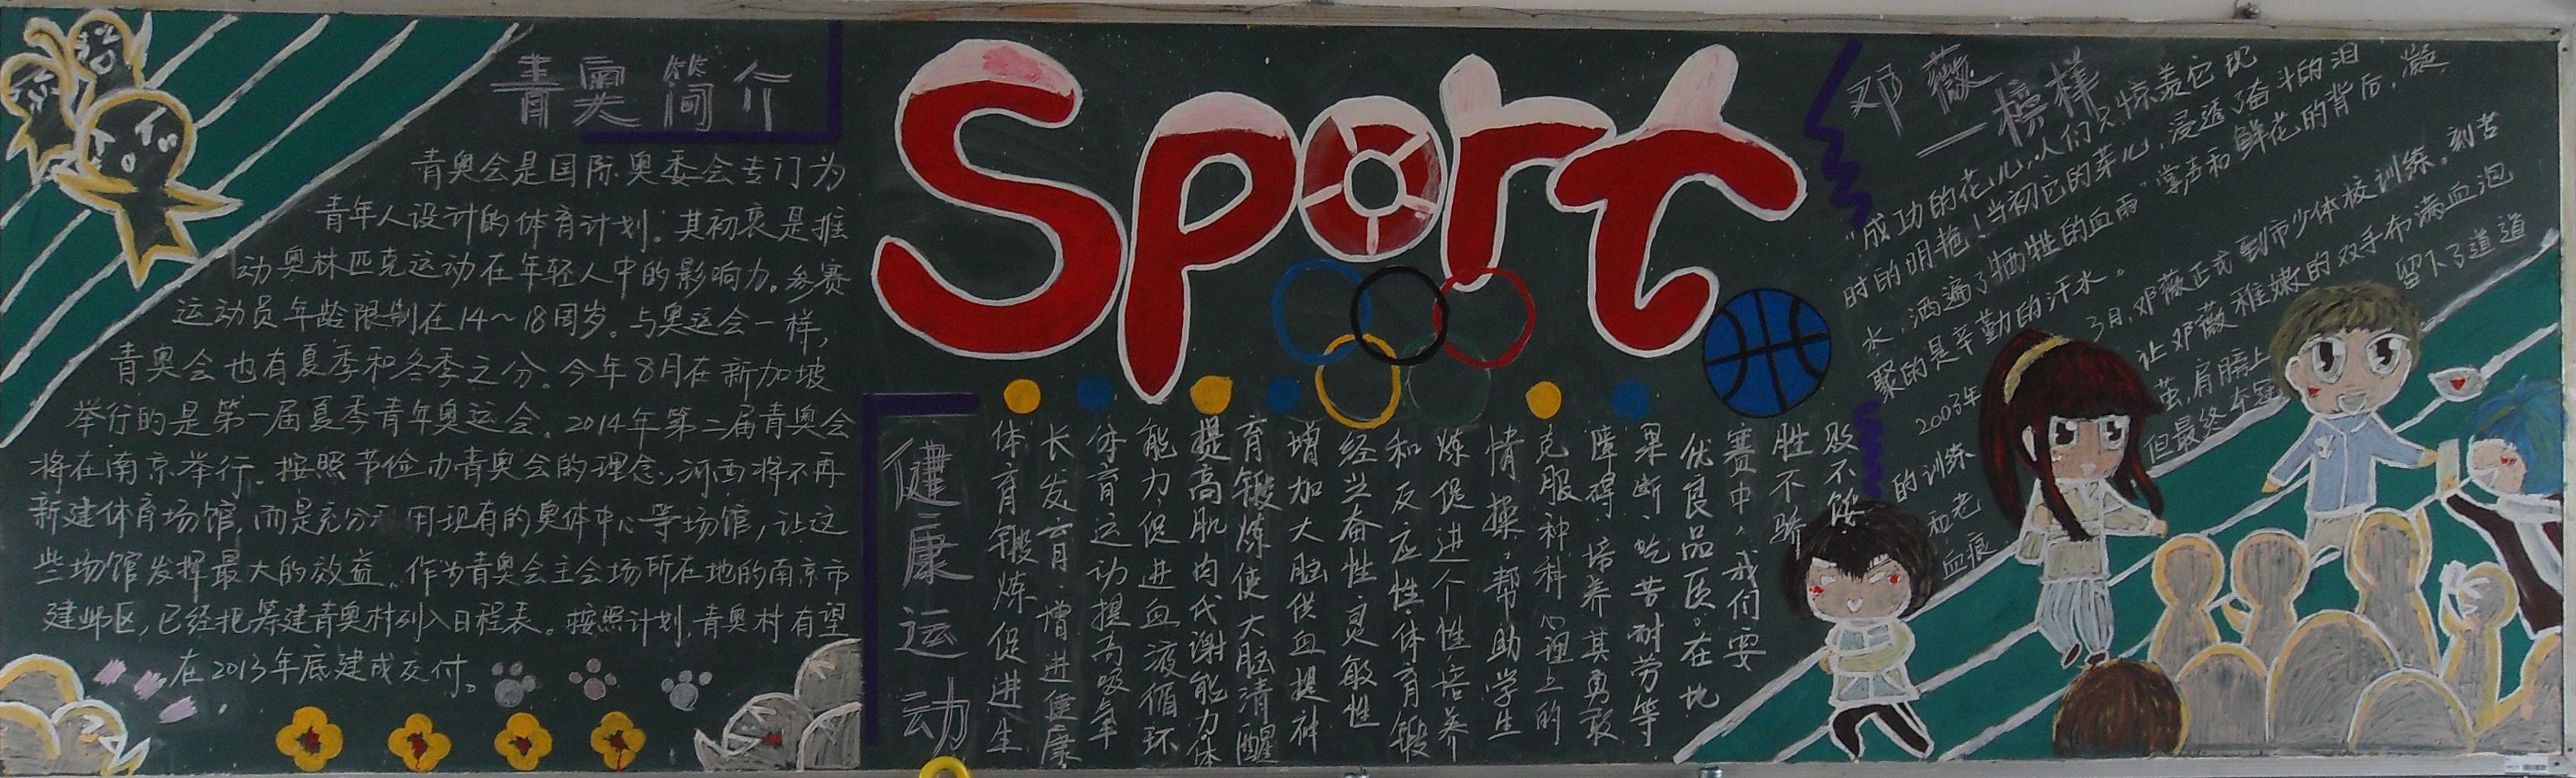 青奥简介
青奥会是国际奥委会专门为
青年人设计的体育计划。其初衷是推
动奥林匹克运动在年轻人中的影响力。参赛
运动员年龄限制在14～18周岁。与奥运会一样，
青奥会也有夏季和冬季之分。今年8月在新加坡
举行的是第一届夏季青年奥运会。2014年第二届青奥会
将在南京举行。按照节俭办青奥会的理念，河西将不再
新建体育场馆，而是充分 用现有的奥体中心等场馆，让这
些场馆发挥最大的效益。作为青奥会主会场所在地的南京市
建邺区，已经把筹建青奥村列入日程表。按照计划，青奥村有望
在2013年底建成交付。
Sport
健康运动
体育锻炼促进生
长发育增进健康
体育运动提高吸氧
能力促进血液循环
提高肌肉代谢能力体
育锻炼使大脑清醒
增加大脑供血提神
经兴奋性灵敏性
和反应性体育锻
炼促进个性培养
情操，帮助学生
克服种科心理上的
障碍，培养其勇敢
果断、吃苦耐劳等
优良品质。在比
赛中，我们要
胜不骄
败不馁
邓薇
—榜样
"成功的花儿，人们只惊羡它现
时的明艳！当初它的芽儿，浸透了奋斗的泪
水，洒遍了牺牲的血雨"掌声和鲜花的背后，凝
聚的是辛勤的汗水。
2003年 3月，邓薇正式到市少体校训练。刻苦
的训练 让邓薇稚嫩的双手布满血泡
和老 茧，肩膀上 留下了道道
血痕 但最终夺冠